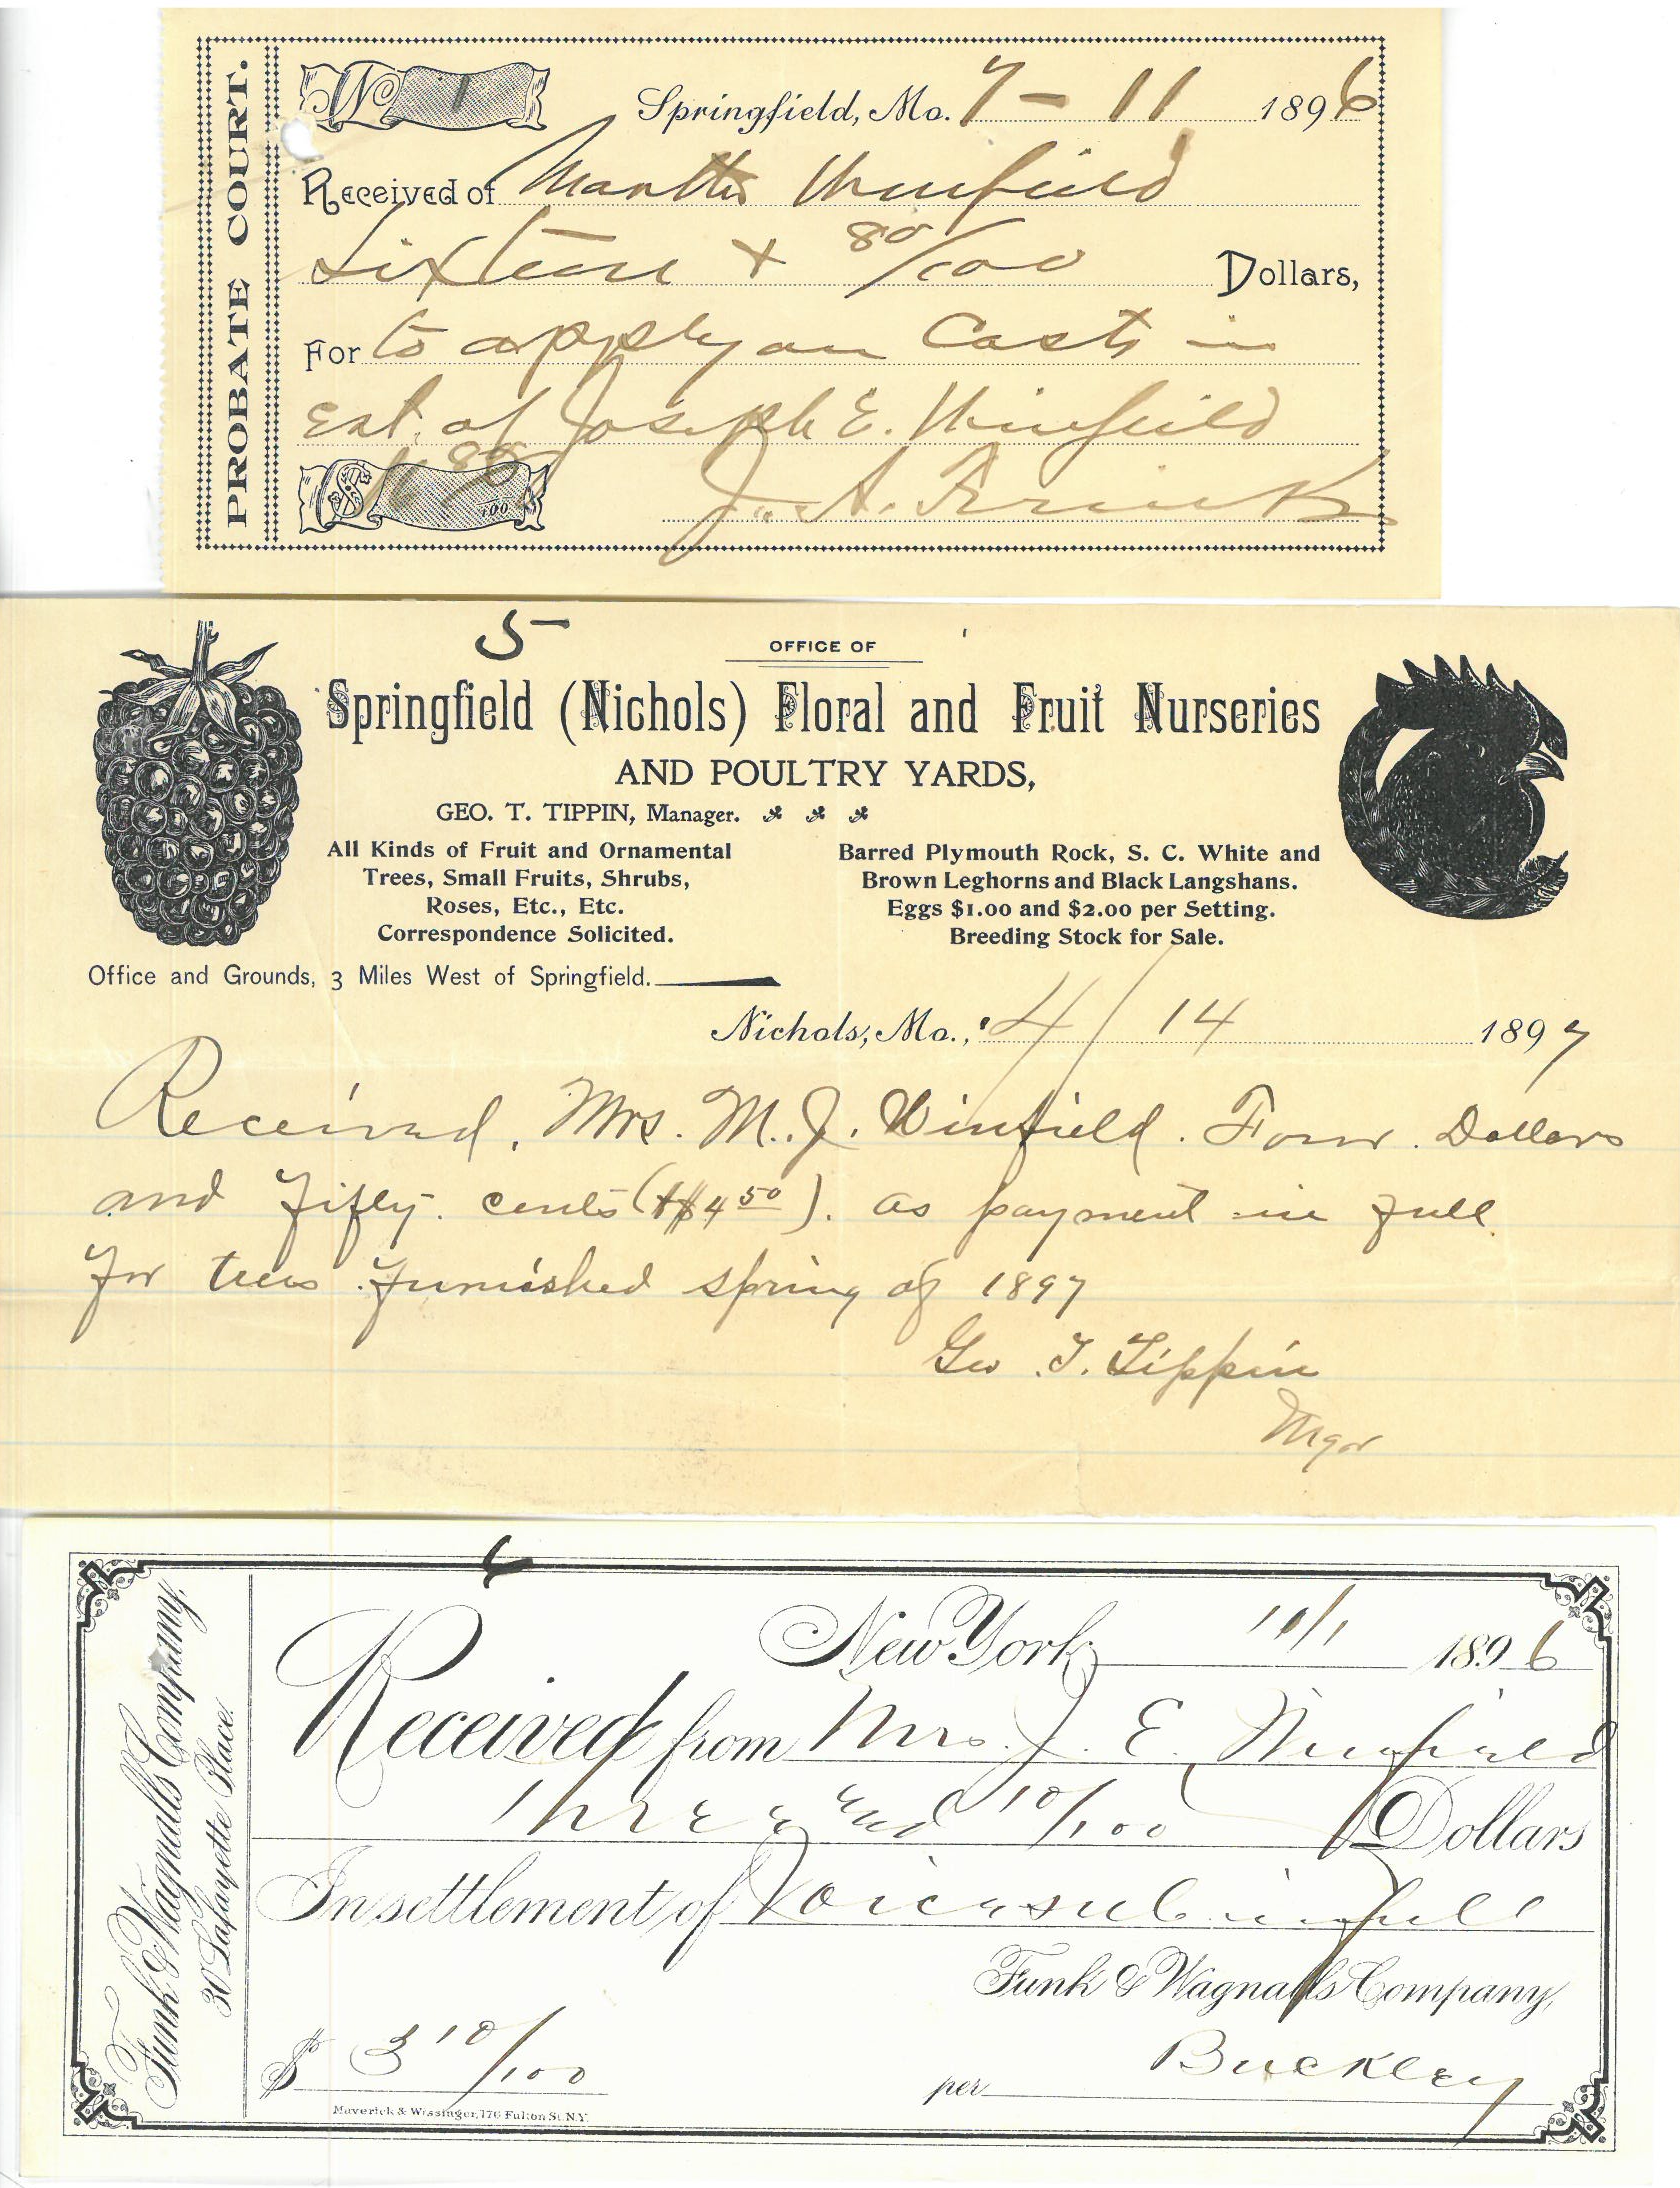 PROBATE COURT.
No 1 Springfield, Mo. 7 - 11 1896
Received of Martha Winfield
Sixteen + 80/100 Dollars,
For to apply on Costs in
Est. of Joseph E. Winfield
$ 16 80 /100 J. A. Frink
5
OFFICE OF
Springfield (Nichols) Floral and Fruit Nurseries
AND POULTRY YARDS,
GEO. T. TIPPIN, Manager.
All Kinds of Fruit and Ornamental
Trees, Small Fruits, Shrubs,
Roses, Etc., Etc.
Correspondence Solicited.
Barred Plymouth Rock, S. C. White and
Brown Leghorns and Black Langshans.
Eggs $1.00 and $2.00 per Setting.
Breeding Stock for Sale.
Office and Grounds, 3 Miles West of Springfield.
Nichols, Mo., 4/14 1897
Received, Mrs. M. J. Winfield. Four Dollars
and Fifty cents ($4 50). as payment in full
for trees furnished spring of 1897
Geo. T. Tippin
Mgr
6
Funk & Wagnalls Company,
30 Lafayette Place.
New York 10/1 1896
Received from Mrs. J. E. Winfield
Three and 10/100 Dollars
In settlement of in full
Funk & Wagnalls Company,
$ 3 10/100 per Buckley
Maverick & Wissinger, 176 Fulton St. N.Y.